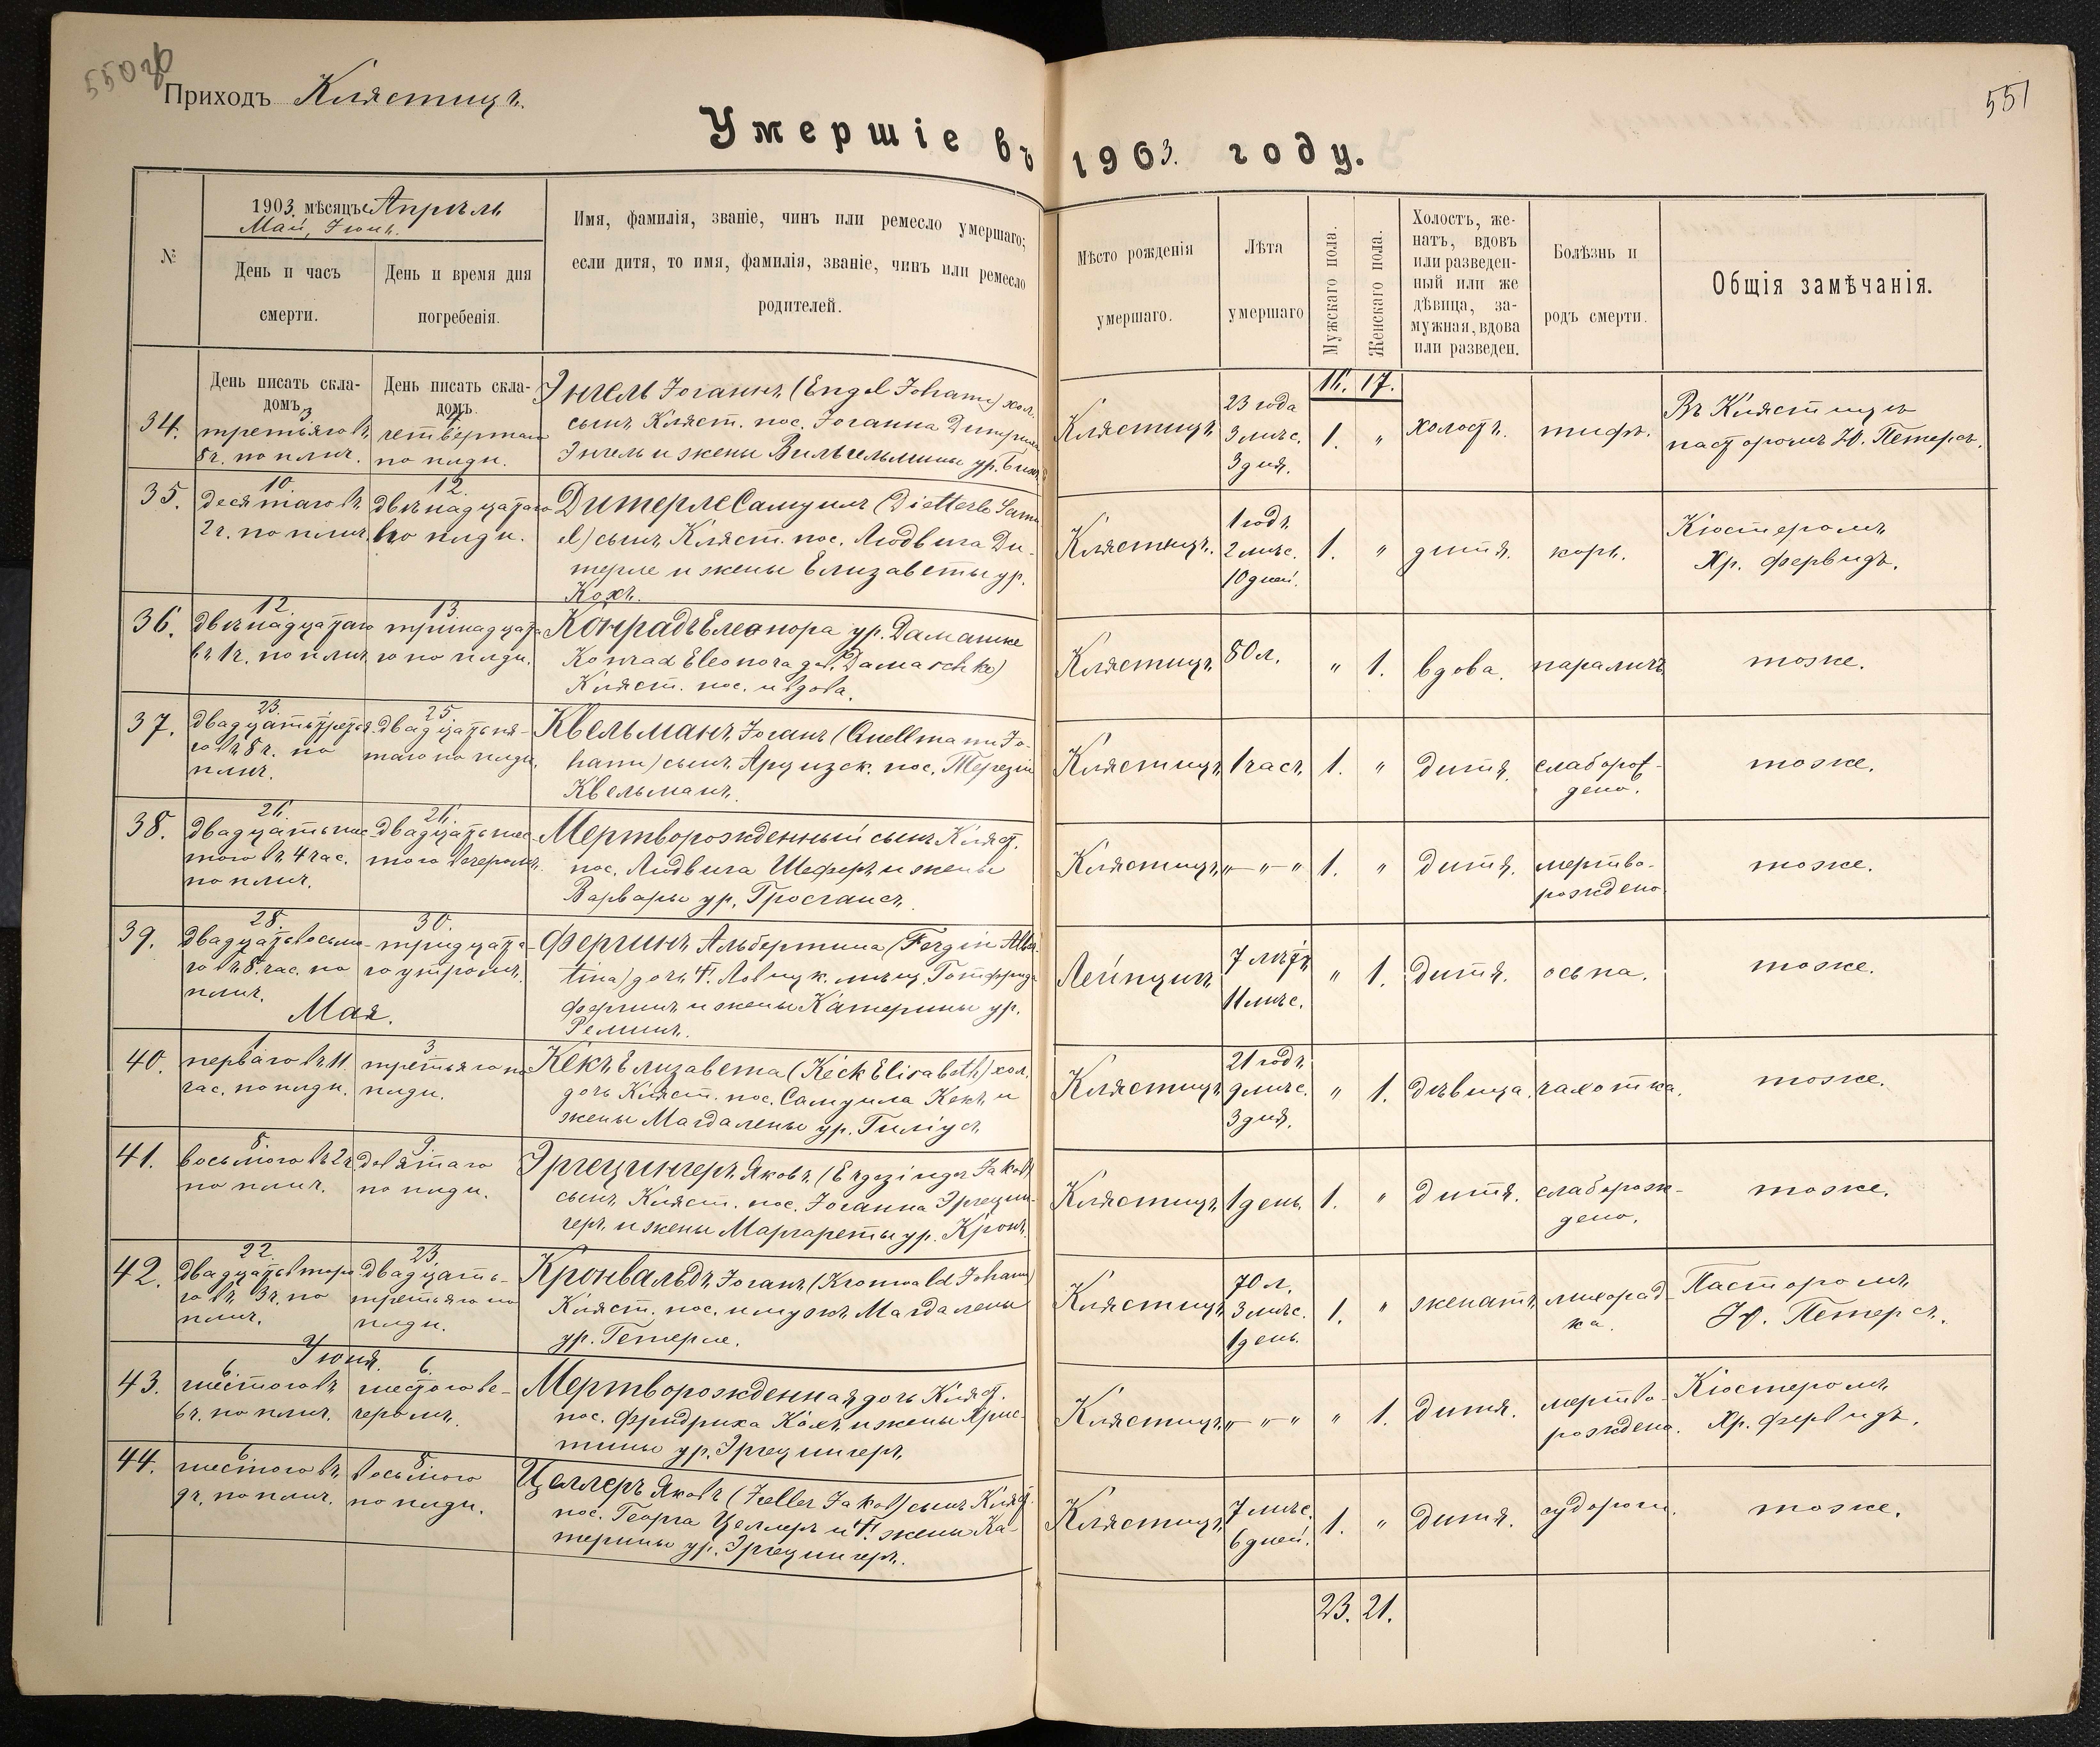 550 об
Приходъ Клястицъ.
551
Умершіе въ 1903. году.
№
1903. мѣсяцъ Апрѣль
Май, Іюнь.
День и часъ
смерти.
День и время дня
погребенія.
Имя, фамилія, званіе, чинъ или ремесло умершаго;
если дитя, то имя, фамилія, званіе, чинъ или ремесло
родителей.
Мѣсто рожденія
умершаго.
Лѣта
умершаго
Мужскаго пола.
Женскаго пола.
Холостъ, же-
натъ, вдовъ
или разведен-
ный или же
дѣвица, за-
мужная, вдова
или разведен.
Болѣзнь и
родъ смерти.
Общія замѣчанія.
День писать скла-
домъ.
День писать скла-
домъ.
16. 17.
34.
3.
третьяго въ
8 ч. по плнч.
4.
четвертаго
по плдн.
Энгель Іоганнъ (Engel Johann) хол.
сынъ Кляст. пос. Іоганна Дитриха
Энгель и жены Вильгельмины ур.
Клястицъ
23 года
3 мѣс.
3 дня.
1. "
холостъ.
тифъ.
Въ Клястицѣ
пасторомъ Ю. Петерсъ.
35.
10.
десятаго въ
2 ч. по плнч.
12.
двѣнадцатаго
по плдн.
Дитерле Самуилъ (Dietterle Samu
el) сынъ Кляст. пос. Людвига Ди-
терле и жены Елизаветы ур.
Кохъ.
Клястицъ.
1 годъ
2 мѣс.
10 дней.
1. "
дитя.
корь.
Кюстеромъ
Хр. Фервидъ.
36.
12.
двѣнадцатаго
въ 1 ч. по плнч.
13.
тринадцата
го по плдн.
Конрадъ Елеонора ур. Дамашке
Konrad Eleonora geb. Damaschke)
Кляст. пос. и вдова.
Клястицъ
80 л.
" 1.
вдова.
параличъ
тоже.
37.
23.
двадцать третья
го въ 8 ч. по
плнч.
25
двадцать пя-
таго по плдн.
Квельманъ Іоганъ (Quellmann Jo-
hann) сынъ Арцизск. пос. Терезіи
Квельманъ.
Клястицъ
1 часъ
1. "
дитя.
слаборож-
дено.
тоже.
38.
26.
двадцать шес
того въ 4 час.
по плнч.
26.
двадцать шес-
того вечеромъ.
Мертворожденный сынъ Кляст.
пос. Людвига Шеферъ и жены
Варвары ур. Гросгансъ.
Клястицъ
"—"—"
1. "
дитя.
мертво-
рождено
тоже.
39.
28.
двадцать восьма-
го въ 8. час. по
плнч.
30.
тридцата-
го утромъ.
Фергинъ Альбертина (Fergin Alber
tina) дочь
Готтфрида
Фергинъ и жены Катерины ур.
Лейпцигъ
7 лѣтъ
11 мѣс.
" 1.
дитя.
оспа.
тоже.
Мая.
40.
1
перваго въ 11
час. по плдн.
3
третьяго по
плдн.
Кекъ Елизавета (Keck Elisabeth) хол.
дочь Кляст. пос. Самуила Кекъ и
жены Магдалены ур. Гиліусъ
Клястицъ
21 годъ
9 мѣс.
3 дня.
" 1.
дѣвица.
чахотка.
тоже.
41.
8.
восьмого въ 2 ч.
по плнч.
9.
девятаго
по плдн.
Эргецингеръ Яковъ (Ergezinger Jakob
сынъ Кляст. пос. Іоганна Эргецин-
геръ и жены Маргареты ур. Кронъ
Клястицъ
1 день
1. "
дитя.
слаборож-
дено.
тоже.
42.
22.
двадцать второ
го въ 3 ч. по
плнч.
23.
двадцать-
третьяго по
плдн.
Кронвальдъ Іоганъ (Kronwald Johann)
Кляст. пос. и мужъ Магдалены
ур. Гетерле.
Клястицъ
70 л.
3 мѣс.
1 день.
1. "
женатъ
лихорад
ка.
Пасторомъ
Ю. Петерсъ.
Іюня.
43.
6.
шестого въ
6 ч. по плнч.
6.
шестого ве-
черомъ.
Мертворожденная дочь Кляст.
пос. Фридриха Кохъ и жены Хрис-
тины ур. Эргецингеръ.
Клястицъ
"—"—"
" 1.
дитя.
мертво-
рождена.
Кюстеромъ
Хр. Фервидъ.
44.
6
шестого въ
9 ч. по плнч.
8
восьмого
по плдн.
Целлеръ Яковъ (Zeller Jakob) сынъ Кляст.
пос. Георга Целлеръ и †. жены Ка-
терины ур. Эргецингеръ.
Клястицъ
7 мѣс.
6 дней.
1. "
дитя.
судороги.
тоже.
23. 21.